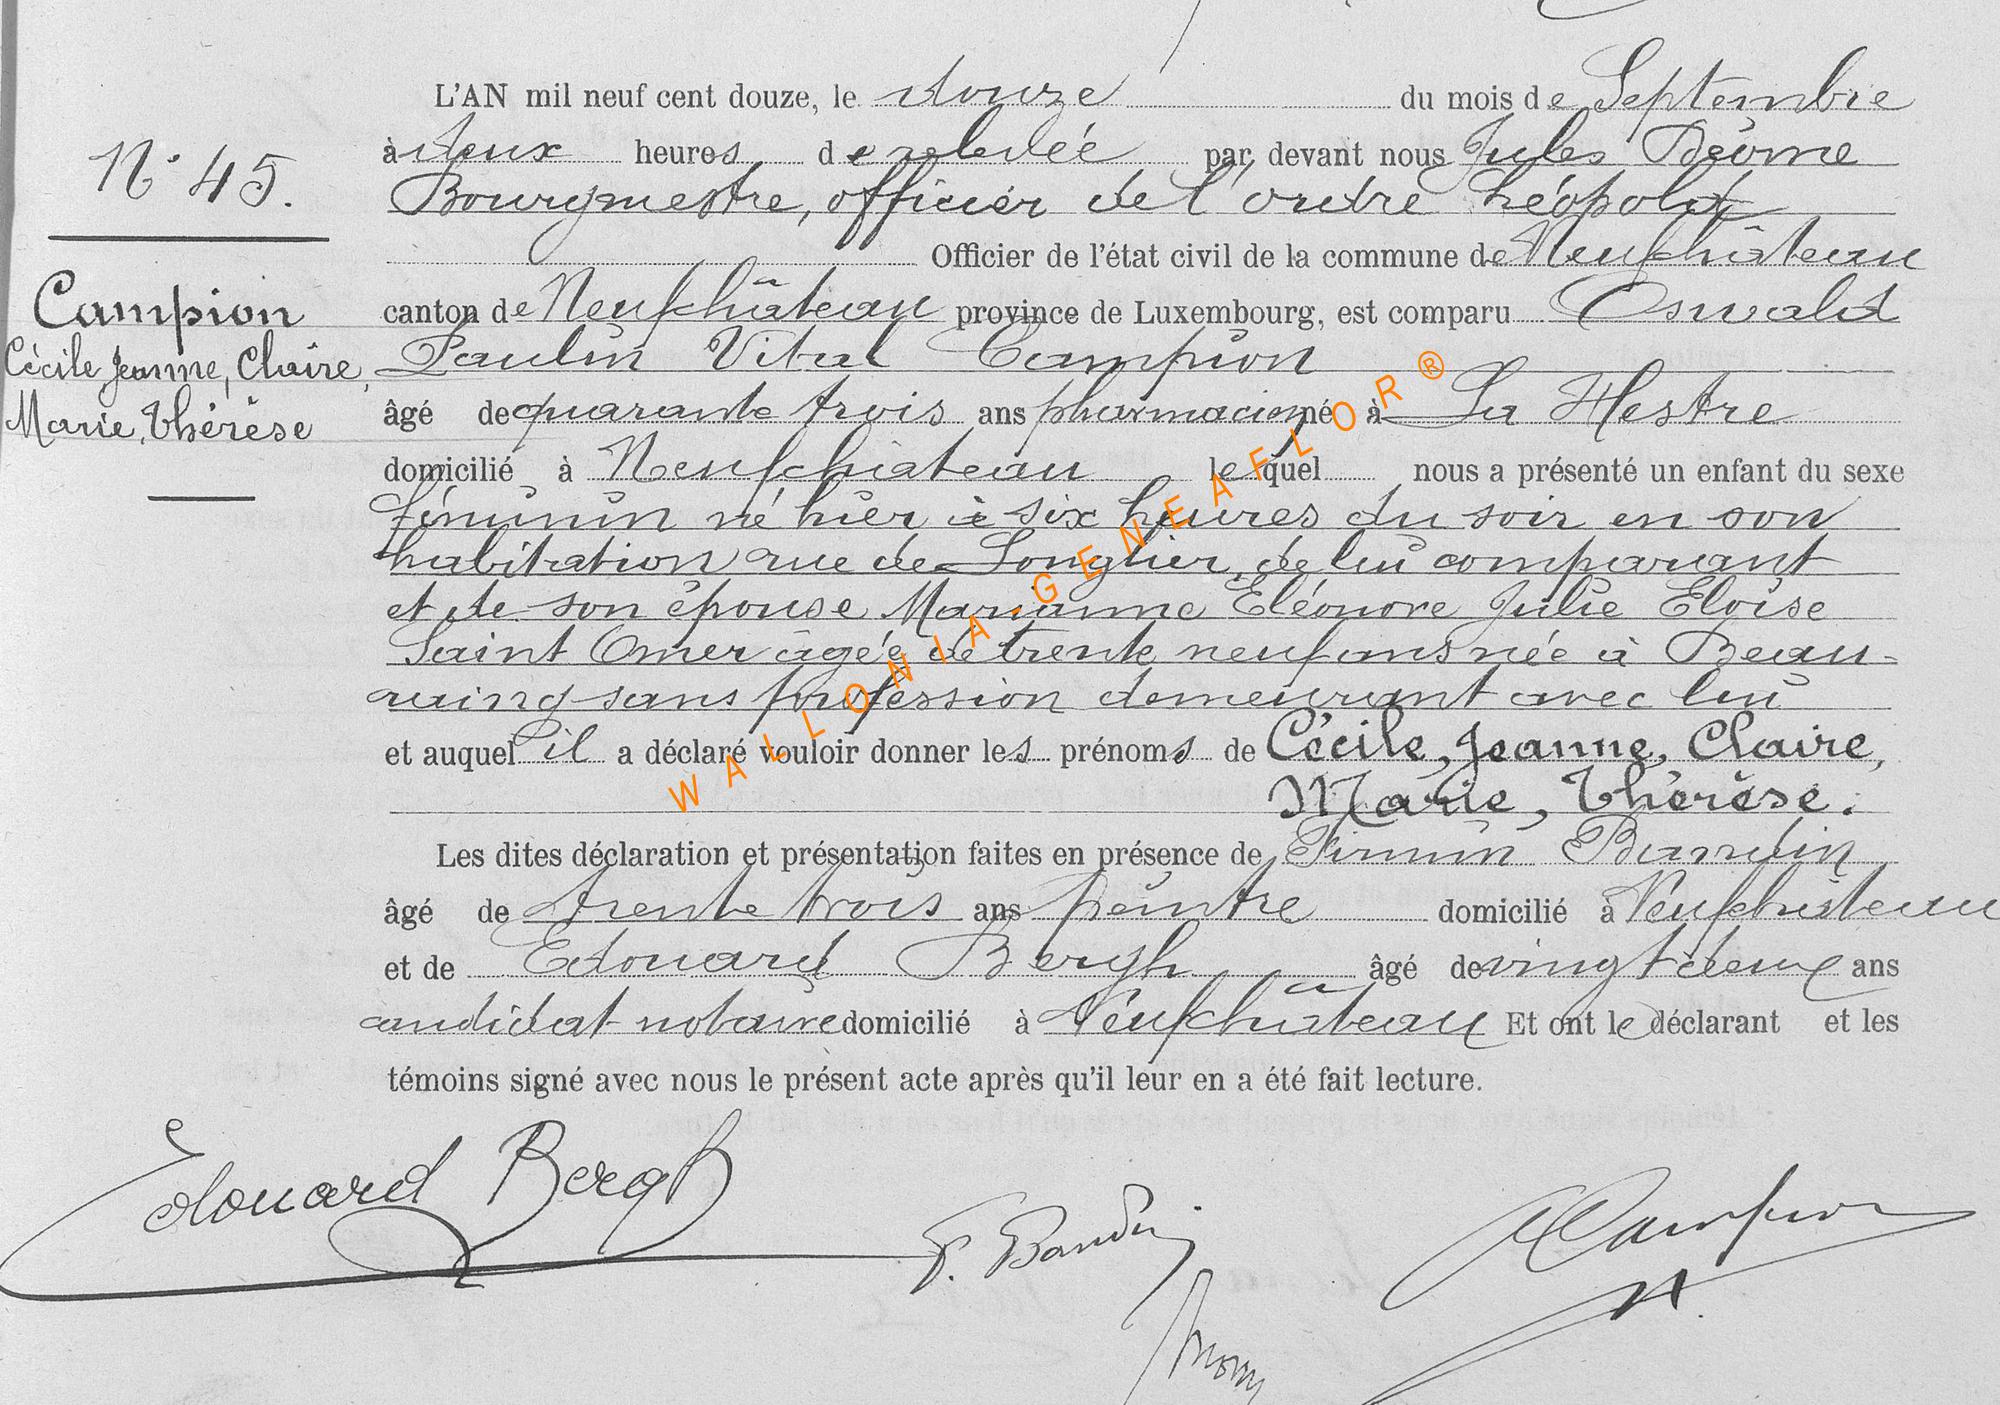 L'AN mil neuf cent douze, le douze du mois de Septembre
N° 45.
à deux heures de relevée par devant nous Jules
Bourgmestre, officier de l'ordre Léopold
Officier de l'état civil de la commune de Neufchâteau
Campion
Cécile Jeanne, Claire,
Marie, Thérèse
canton de Neufchâteau province de Luxembourg, est comparu Oswald
Paulin Vital Campion
âgé de quarante trois ans pharmacien né à La Hestre
domicilié à Neufchâteau lequel nous a présenté un enfant du sexe
féminin né hier à six heures du soir en son
habitation rue de Longlier, de lui comparant
et de son épouse Marianne Eléonore Julie Eloïse
Saint Omer âgée de trente neuf ans née à Beau-
raing sans profession demeurant avec lui
et auquel il a déclaré vouloir donner les prénoms de Cécile, Jeanne, Claire,
Marie, Thérèse.
Les dites déclaration et présentation faites en présence de Firmin Baudin
âgé de trente trois ans peintre domicilié à Neufchâteau
et de Edouard Bergh âgé de vingt deux ans
candidat notaire domicilié à Neufchâteau Et ont le déclarant et les
témoins signé avec nous le présent acte après qu'il leur en a été fait lecture.
Edouard Bergh
F. Baudin
Campion
WALLONIA-GENEAFLOR®